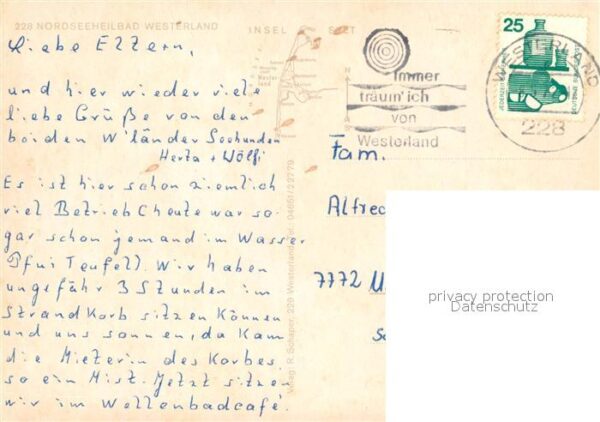 228 NORDSEEHEILBAD WESTERLAND
INSEL SYLT
Liebe Eltern,
und hier wieder viele
liebe Grüße von den
beiden W'länder Seehunden
Herta + Wölfi
Es ist hier schon ziemlich
viel Betrieb (heute war so-
gar schon jemand im Wasser
Pfui Teufel). Wir haben
ungefähr 3 Stunden im
Strandkorb sitzen können
und uns sonnen, da kam
die Mieterin des Korbes.
so ein Mist. Jetzt sitzen
wir im Wellenbadcafé.
Verlag: R. Schaper, 228 Westerland, Tel. 04651/22779
Immer
träum' ich
von
Westerland
25
WESTERLAND
228
Fam.
Alfred
7772
privacy protection
Datenschutz